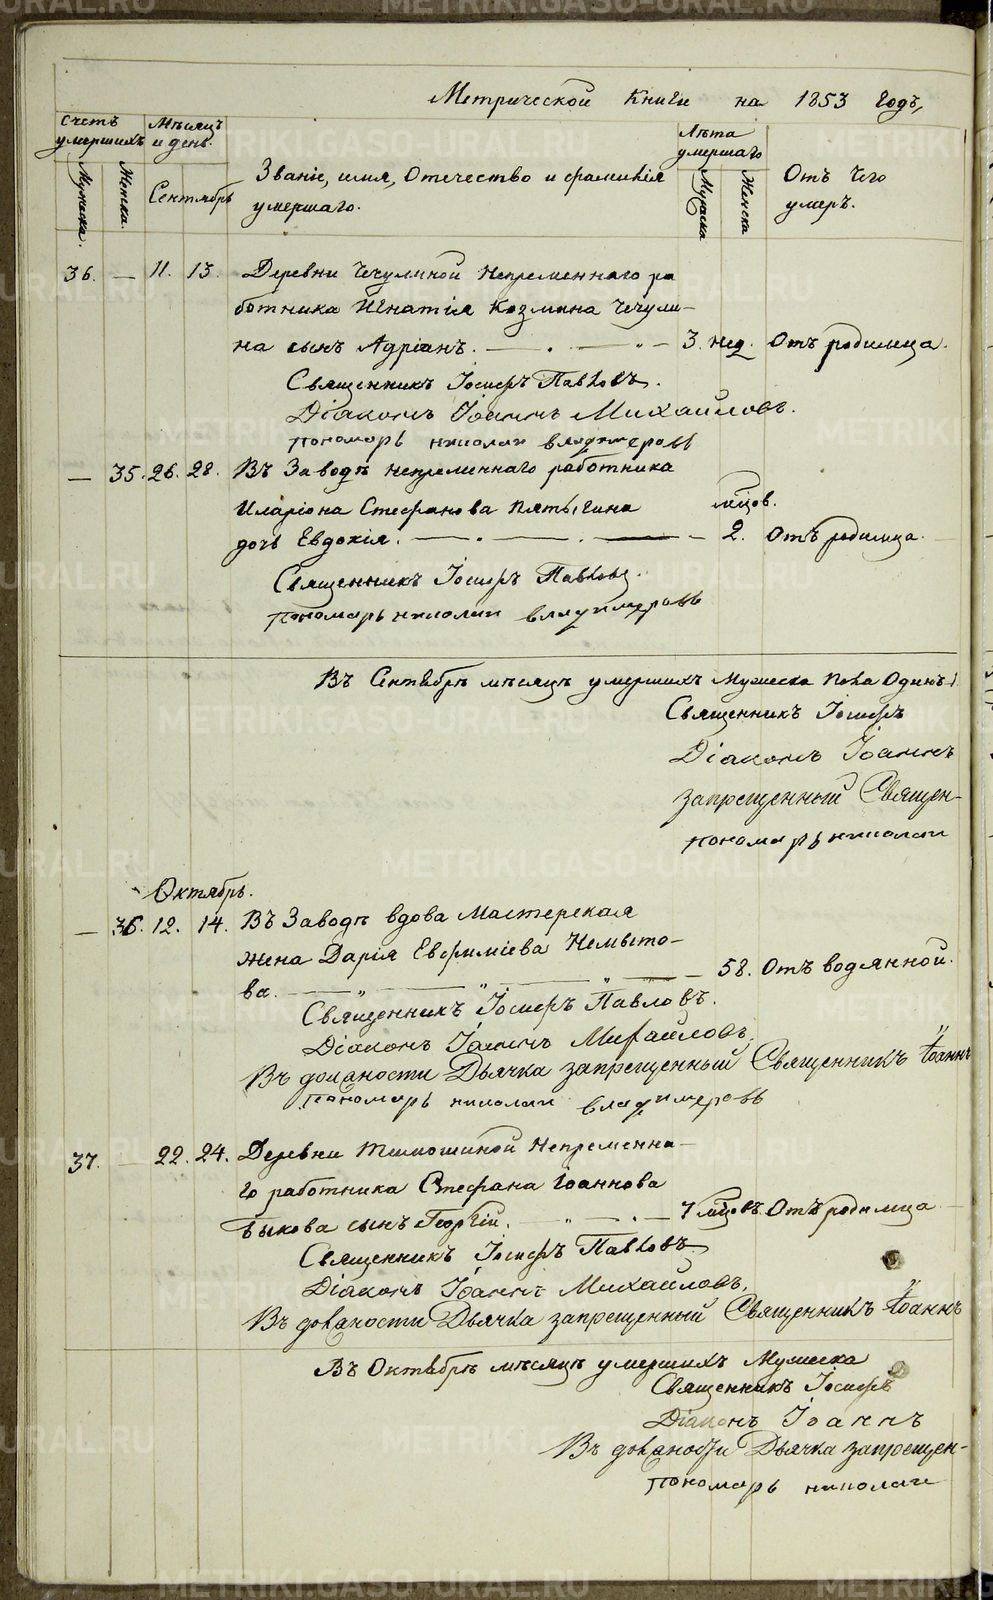 Метрической Книги на 1853 годъ,
Счетъ умершихъ
Мѣсяцъ и день.
Лѣта умершаго
Мужеска.
Женска.
Сентябрь
Званіе, имя, Отечество и фамилія умершаго.
Мужска
Женска
Отъ Чего умеръ.
36. — 11. 13. Деревни Чечулиной Непременнаго ра
ботника Игнатія Козмина Чечули–
на сынъ Адріанъ. — 3. нед. Отъ родимца.
Священникъ Іосифъ Павловъ.
Діаконъ Іоаннъ Михайловъ.
пономарь николаи владимеровъ
— 35. 26. 28. Въ Заводѣ непременнаго работника
Иларіона Стефанова Пятыгина мѣсцов.
дочь Евдокія. — 2. Отъ родимца.
Священникъ Іосифъ Павловъ.
пономарь николаи владимеровъ
Въ Сентябрѣ мѣсяцѣ умершихъ Мужеска пола Одинъ 1
Священникъ Іосифъ
Діаконъ Іоаннъ
запрещенный Священ-
пономарь николаи
Октябрь.
— 36. 12. 14. Въ Заводѣ вдова Мастерская
жена Дарія Евфиміева Немыто–
ва. — 58. Отъ водянной.
Священникъ Іосифъ Павловъ.
Діаконъ Іоаннъ Михайловъ.
Въ должности Дьячка запрещенный Священникъ Іоаннъ
пономарь николаи владимеровъ
37. — 22. 24. Деревни Тимошиной Непременна–
го работника Стефана Іоаннова
Быкова сынъ Георгій. — 7 мѣсцовъ. Отъ родимца
Священникъ Іосифъ Павловъ
Діаконъ Іоаннъ Михайловъ.
Въ должности Дьячка запрещенный Священникъ Іоаннъ
Въ Октябрѣ мѣсяцѣ умершихъ Мужеска
Священникъ Іосифъ
Діаконъ Іоаннъ
Въ должности Дьячка запрещен-
пономарь николаи
METRIKI.GASO-URAL.RU